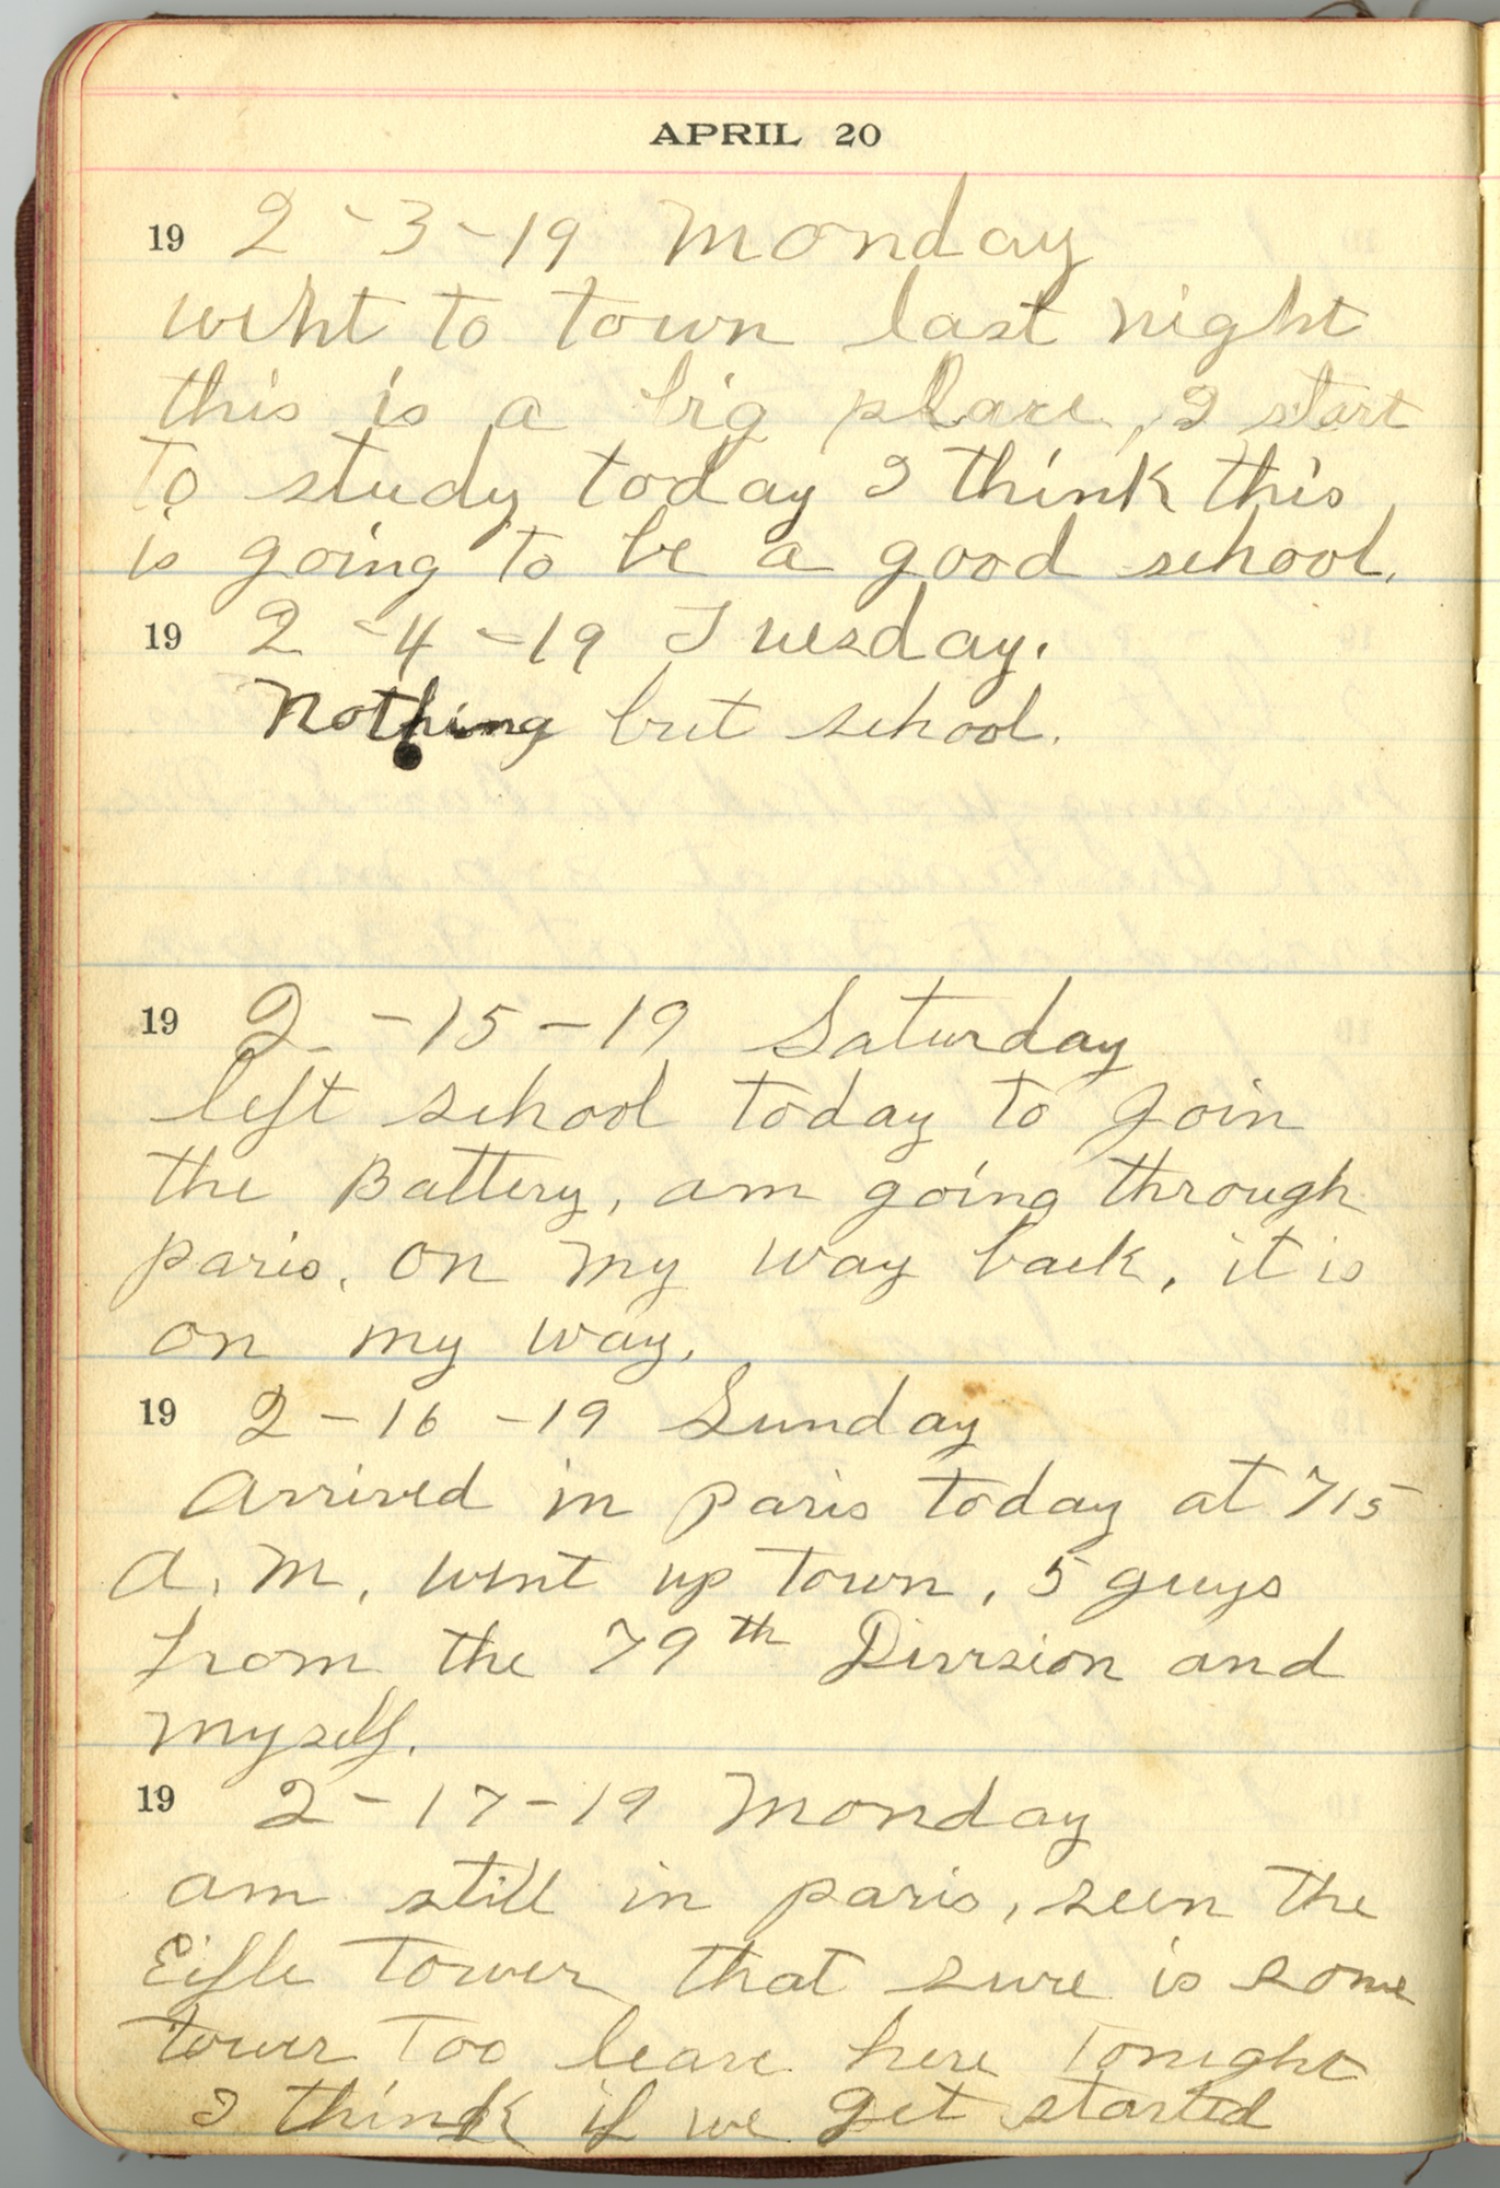 APRIL 20
19 2-3-19 Monday
went to town last night
this is a big place, I start
to study today I think this
is going to be a good school.
19 2-4-19 Tuesday.
Nothing but school.
19 2-15-19 Saturday
left school today to join
the Battery, am going through
paris, on my way back, it is
on my way.
19 2-16-19 Sunday
Arrived in paris today at 715
A.M. went up town, 5 guys
from the 79th Division and
myself.
19 2-17-19 Monday
am still in paris, seen the
Eifle Tower that sure is some
tower too leave here Tonight
I think if we get started